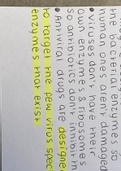 the bacterial enzymes so
human ones aren't damaged
• Viruses don't have their
own enzymes & ribosomes
so antibiotics can't inhibit
• Antiviral drugs are designed
to target the few virus spec
enzymes that exist